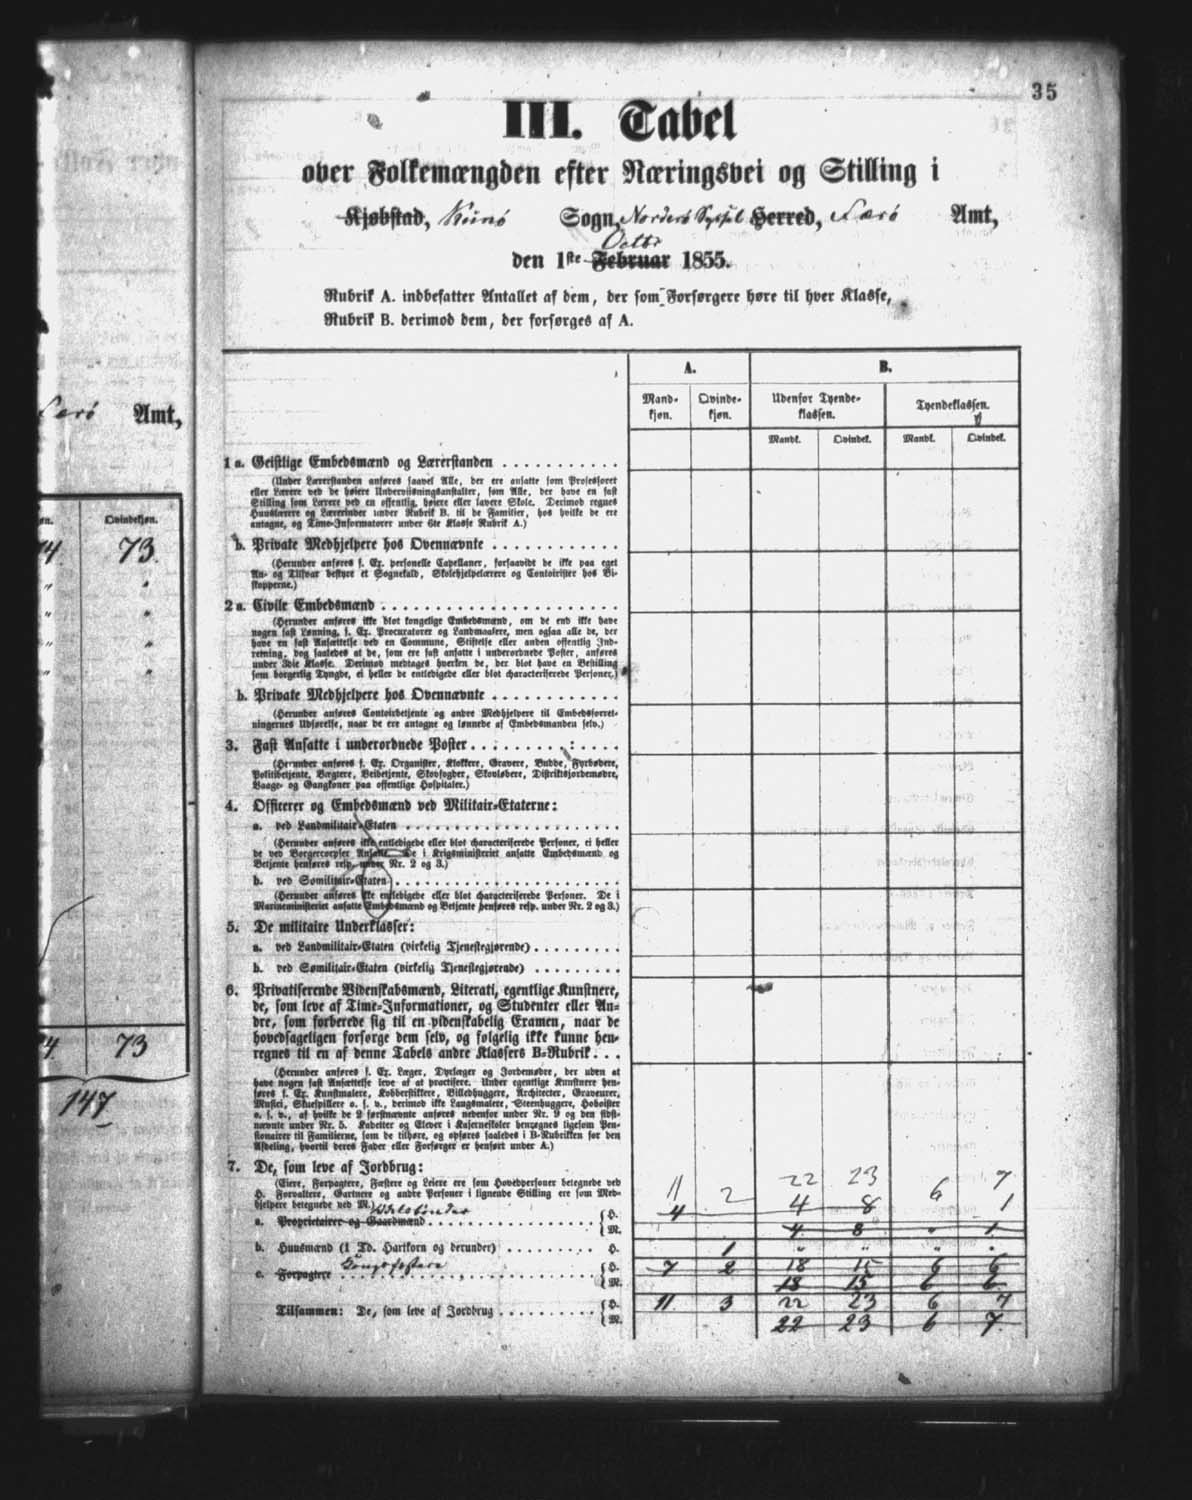 35
III. Tabel
over Folkemængden efter Næringsvei og Stilling i
Kjøbstad, Kunö Sogn, Norderö Syssel Herred, Færö Amt,
Octbr
den 1ste Februar 1855.
Rubrik A. indbefatter Antallet af dem, der som Forsørgere høre til hver Klasse,
Rubrik B. derimod dem, der forsørges af A.
A. B.
Mandkjøn. Qvindekjøn. Udenfor Tyendeklassen. Tyendeklassen.
Mandk. Qvindek. Mandk. Qvindek.
1 a. Geistlige Embedsmænd og Lærerstanden
(Under Lærerstanden anføres saavel Alle, der ere ansatte som Professorer
eller Lærere ved de høiere Underviisningsanstalter, som Alle, der have en fast
Stilling som Lærere ved en offentlig, høiere eller lavere Skole. Derimod regnes
Huuslærere og Lærerinder under Rubrik B. til de Familier, hos hvilke de ere
antagne, og Time-Informatorer under 6te Klasse Rubrik A.)
b. Private Medhjelpere hos Ovennævnte
(Herunder anføres f. Ex. personelle Capellaner, forsaavidt de ikke paa eget
An- og Tilsvar bestyre et Sognekald, Skolehjelpelærere og Contoirister hos Bi-
skopperne.)
2 a. Civile Embedsmænd
(Herunder anføres ikke blot kongelige Embedsmænd, om de end ikke have
nogen fast Lønning, f. Ex. Procuratorer og Landmaalere, men ogsaa alle de, der
have en fast Ansættelse ved en Commune, Stiftelse eller anden offentlig Ind-
retning, dog saaledes at de, som ere fast ansatte i underordnede Poster, anføres
under 3die Klasse. Derimod medtages hverken de, der blot have en Bestilling
som borgerlig Tyngde, ei heller de entledigede eller blot characteriserede Personer.)
b. Private Medhjelpere hos Ovennævnte
(Herunder anføres Contoirbetjente og andre Medhjelpere til Embedsforret-
ningernes Udførelse, naar de ere antagne og lønnede af Embedsmanden selv.)
3. Fast Ansatte i underordnede Poster
(Herunder anføres f. Ex. Organister, Klokkere, Gravere, Budde, Fyrbødere,
Politibetjente, Vægtere, Veibetjente, Skovfogder, Skovløbere, Distriktsjordemødre,
Vaage- og Gangkoner paa offentlige Hospitaler.)
4. Officerer og Embedsmænd ved Militair-Etaterne:
a. ved Landmilitair-Etaten
(Herunder anføres ikke entledigede eller blot characteriserede Personer, ei heller
de ved Borgercorpser Ansatte. De i Krigsministeriet ansatte Embedsmænd og
Betjente henføres resp. under Nr. 2 og 3.)
b. ved Sømilitair-Etaten
(Herunder anføres ikke entledigede eller blot characteriserede Personer. De i
Marineministeriet ansatte Embedsmænd og Betjente henføres resp. under Nr. 2 og 3.)
5. De militaire Underklasser:
a. ved Landmilitair-Etaten (virkelig Tjenestegjørende)
b. ved Sømilitair-Etaten (virkelig Tjenestegjørende)
6. Privatiserende Videnskabsmænd, Literati, egentlige Kunstnere,
de, som leve af Time-Informationer, og Studenter eller An-
dre, som forberede sig til en videnskabelig Examen, naar de
hovedsageligen forsørge dem selv, og følgelig ikke kunne hen-
regnes til en af denne Tabels andre Klassers B-Rubrik
(Herunder anføres f. Ex. Læger, Dyrlæger og Jordemødre, der uden at
have nogen fast Ansættelse leve af at practisere. Under egentlige Kunstnere hen-
føres f. Ex. Kunstmalere, Kobberstikkere, Billedhuggere, Architecter, Graveurer,
Musici, Skuespillere o. s. v., derimod ikke Laugsmalere, Steenhuggere, Hoboister
o. s. v., af hvilke de 2 førstnævnte anføres nedenfor under Nr. 9 og den sidst-
nævnte under Nr. 5. Kadetter og Elever i Kaserneskoler henregnes ligesom Pen-
sionairer til Familierne, som de tilhøre, og opføres saaledes i B-Rubrikken for den
Afdeling, hvortil deres Fader eller Forsørger er henført under A.)
7. De, som leve af Jordbrug:
(Eiere, Forpagtere, Fæstere og Leiere ere som Hovedpersoner betegnede ved
H. Forvaltere, Gartnere og andre Personer i lignende Stilling ere som Med-
hjelpere betegnede ved M.)
11 2 22 23 6 7
Odelsbönder
a. Proprietairer og Gaardmænd H. 4 4 8 1
M. 4 8 " 1
b. Huusmænd (1 Td. Hartkorn og derunder) H. 1 " " " "
Kongsfæstere
c. Forpagtere H. 7 2 18 15 6 6
M. 18 15 6 6
Tilsammen: De, som leve af Jordbrug H. 11 3 22 23 6 7
M. 22 23 6 7
Færö Amt,
Qvindekjøn.
74. 73.
" "
" "
" "
" "
74 73
147